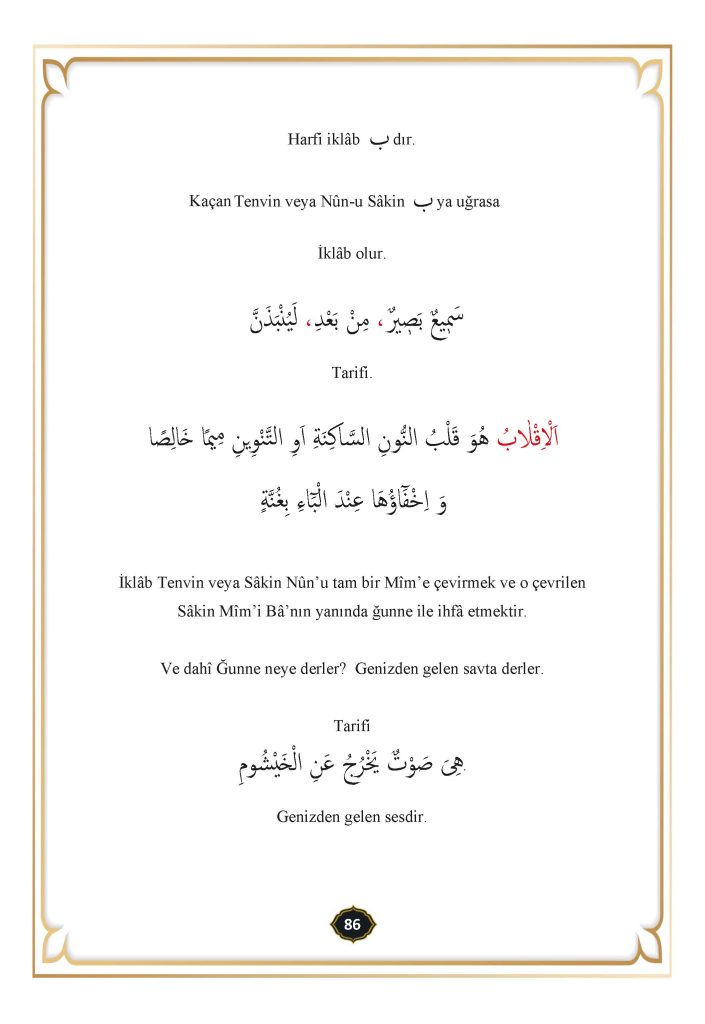 Harfi iklâb ب dır.
Kaçan Tenvin veya Nûn-u Sâkin ب ya uğrasa
İklâb olur.
سَمٖيعٌ بَصٖيرٌ ، مِنْ بَعْدِ ، لَيُنْبَذَنَّ
Tarifi.
اَلْاِقْلَابُ هُوَ قَلْبُ النُّونِ السَّاكِنَةِ اَوِ التَّنْوٖينِ مٖيمًا خَالِصًا
وَ اِخْفَٓاؤُهَا عِنْدَ الْبَٓاءِ بِغُنَّةٍ
İklâb Tenvin veya Sâkin Nûn’u tam bir Mîm’e çevirmek ve o çevrilen
Sâkin Mîm’i Bâ’nın yanında ğunne ile ihfâ etmektir.
Ve dahî Ğunne neye derler? Genizden gelen savta derler.
Tarifi
هِىَ صَوْتٌ يَخْرُجُ عَنِ الْخَيْشُومِ.
Genizden gelen sesdir.
86